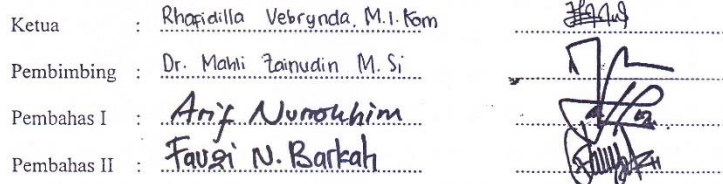 Ketua : Rhafidilla Vebrynda, M.I.Kom
Pembimbing : Dr. Mahli Zainudin M. Si
Pembahas I : Arif Nurokhim
Pembahas II : Fauzi N. Barkah